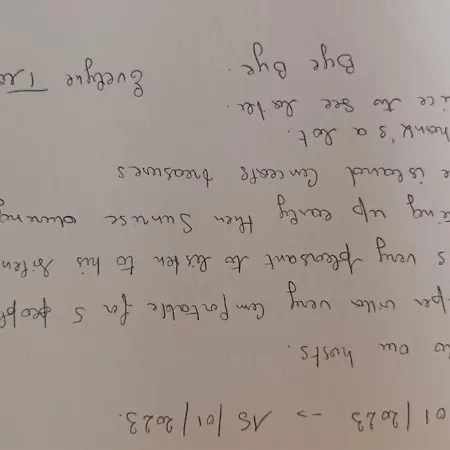 01/2023 -> 15/01/2023.
to our hosts.
per villa very Comfortable for 5 peopl
s very pleasant to listen to his silen
ing up early then Sunrise
e island Conceals treasures
hank's a lot.
ice to see later.
Bye Bye. Evelyne